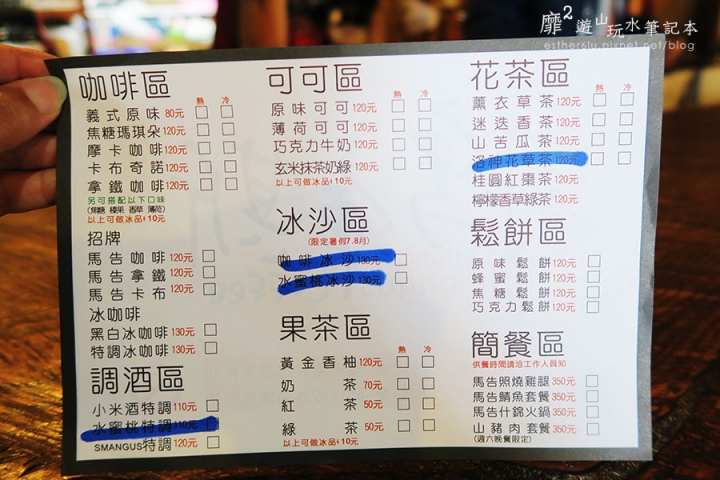 靡²遊山玩水筆記本
esther6lu.pixnet.net/blog
咖啡區
熱 冷
義式原味80元
焦糖瑪琪朵120元
摩卡咖啡120元
卡布奇諾120元
拿鐵咖啡120元
另可搭配以下口味
(焦糖 榛果 香草 薄荷)
以上可做冰品+10元
招牌
馬告咖啡120元
馬告拿鐵120元
馬告卡布120元
冰咖啡
黑白冰咖啡130元
特調冰咖啡130元
調酒區
小米酒特調110元
水蜜桃特調110元
SMANGUS特調120元
可可區
熱 冷
原味可可120元
薄荷可可120元
巧克力牛奶120元
玄米抹茶奶綠120元
以上可做冰品+10元
冰沙區
(限定暑假7.8月)
咖啡冰沙130元
水蜜桃冰沙130元
果茶區
熱 冷
黃金香柚120元
奶茶70元
紅茶50元
綠茶50元
以上可做冰品+10元
花茶區
熱 冷
薰衣草茶120元
迷迭香茶120元
山苦瓜茶120元
洛神花草茶120元
桂圓紅棗茶120元
檸檬香草綠茶120元
鬆餅區
原味鬆餅120元
蜂蜜鬆餅120元
焦糖鬆餅120元
巧克力鬆餅120元
簡餐區
供餐時間請洽工作人員知
馬告照燒雞腿350元
馬告鯖魚套餐350元
馬告什錦火鍋350元
山豬肉套餐350元
(週六晚餐限定)